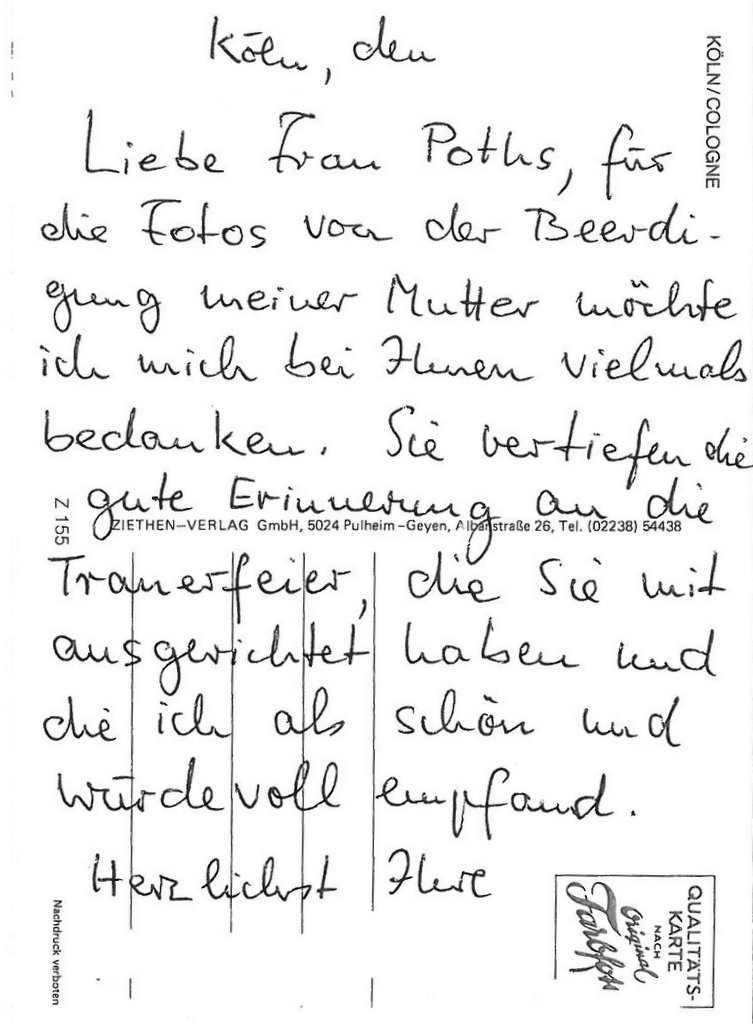 Köln, den
Liebe Frau Poths, für
die Fotos von der Beerdi-
gung meiner Mutter möchte
ich mich bei Ihnen vielmals
bedanken. Sie vertiefen die
gute Erinnerung an die
Trauerfeier, die Sie mit
ausgerichtet haben und
die ich als schön und
würdevoll empfand.
Herzlichst Ihre
KÖLN/COLOGNE
Z 155
ZIETHEN-VERLAG GmbH, 5024 Pulheim-Geyen, Albanstraße 26, Tel. (02238) 54438
Nachdruck verboten
QUALITÄTS-
KARTE
NACH
Original
Farbfoto